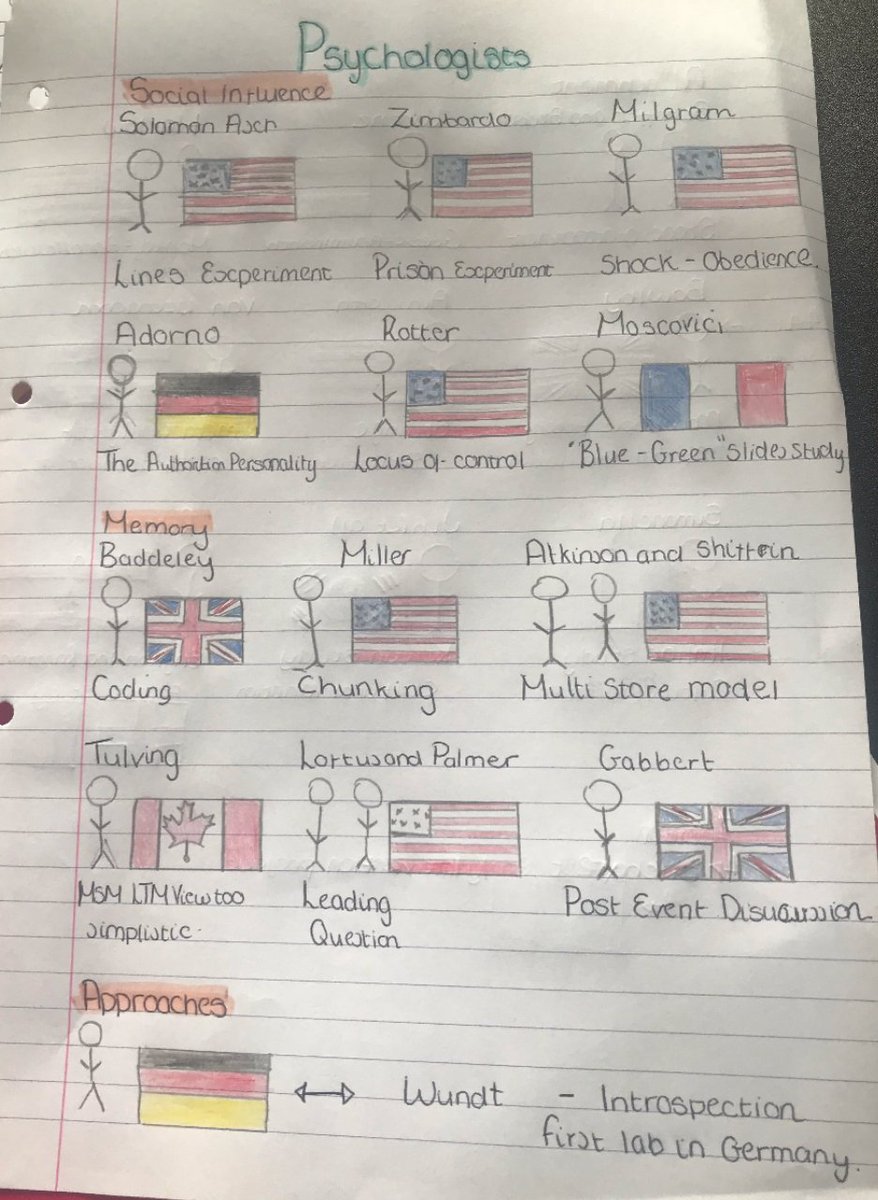 Psychologists
Social Influence
Soloman Asch Zimbardo Milgram
Lines Experiment Prison Experiment Shock - Obedience.
Adorno Rotter Moscovici
The Authoritian Personality Locus of control "Blue-Green" Slides study
Memory
Baddeley Miller Atkinson and Shiffrin
Coding Chunking Multi Store model
Tulving Loftus and Palmer Gabbert
MSM LTM View too Leading Post Event Discussion
simplistic. Question
Approaches
Wundt - Introspection
first lab in Germany.